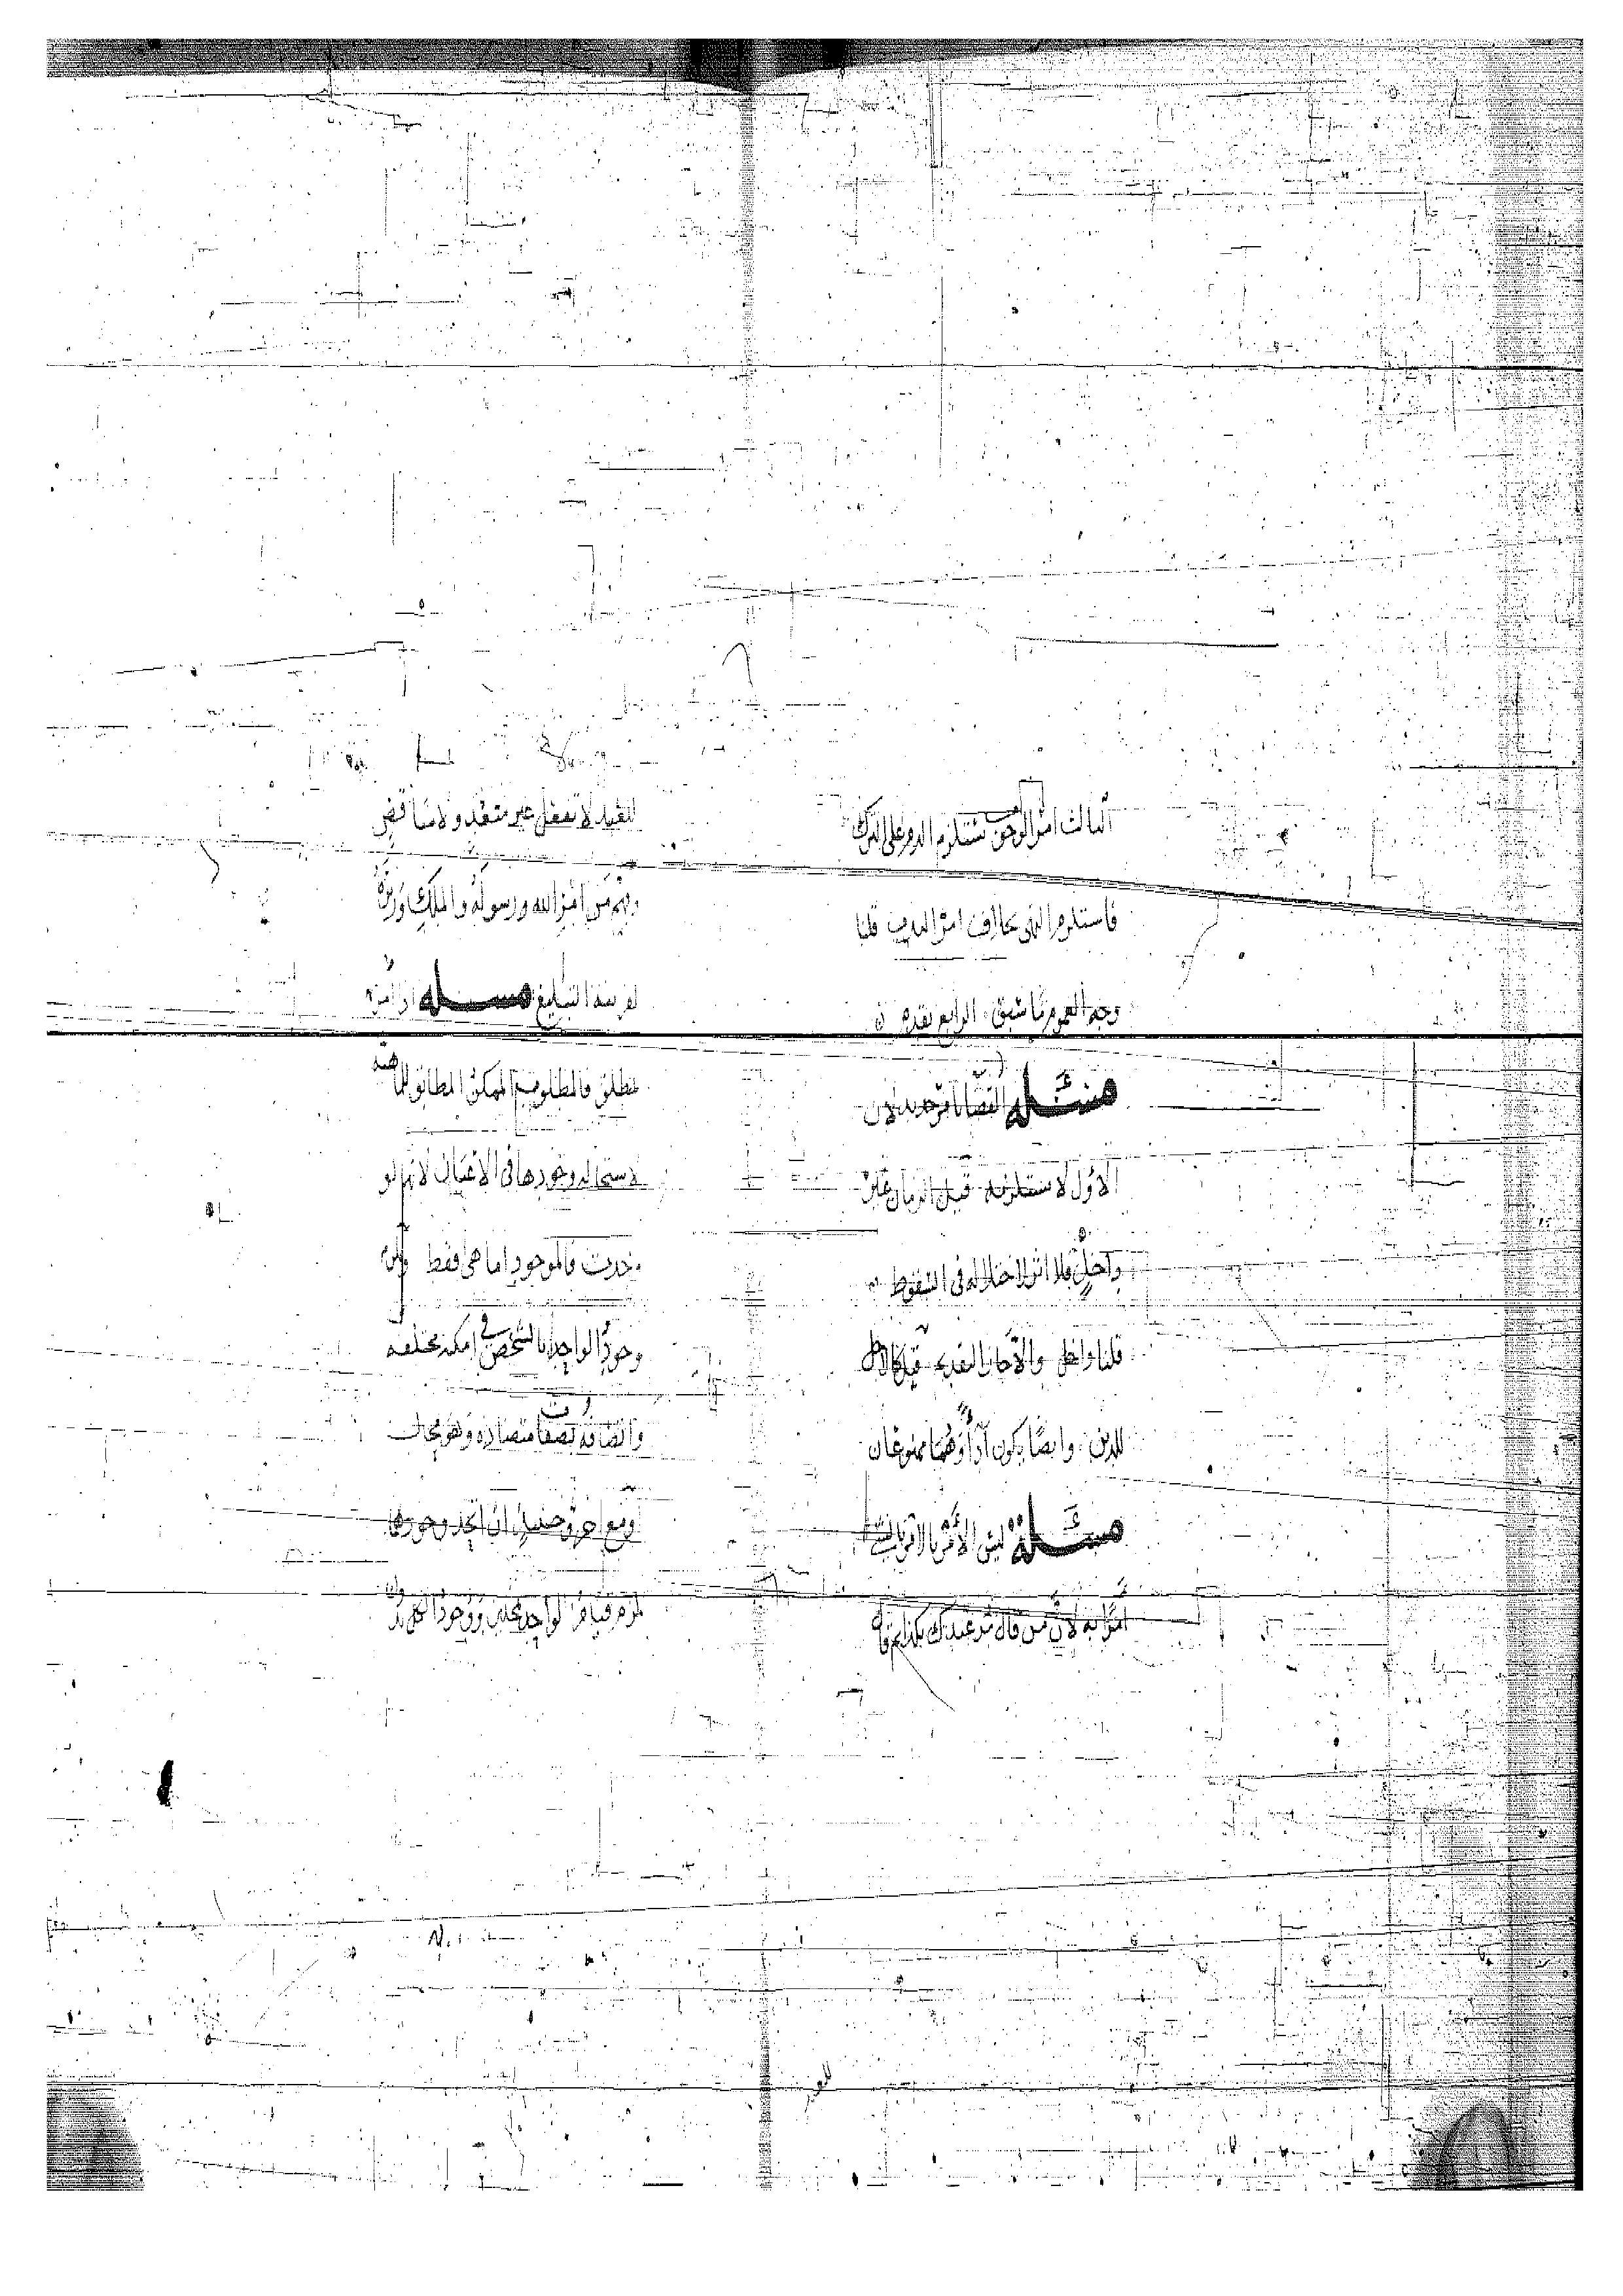 الثالث امر الوجوب يستلزم الذم على الترك
فاستلزم النهي بخلاف امر الندب قلنا
وجه العموم ما سبق الرابع تقدم
مسئلة القضا بامر جديد لان
الاول لا يستلزمه قيل الزمان غير
داخل فلا اثر لاختلاله في السقوط
قلنا داخل والا جاز التقديم قيل كاجل
للدين وايضا يكون اداء وهما ممنوعان
مسئلة ليس الأمر بالامر بالشئ
امرا به لأن من قال مر عبدك بكذا لم
لتقييد لا تفعل غير متعد ولا مناقض
وفهم من امر الله ورسوله والملك وزيره
لقرينة التبليغ مسله اذا امر
مطلق فالمطلوب الممكن المطابق للماهية
لاستحالة وجودها في الاعيان لانه لو
وجدت فالموجود اما هي فقط ولزم
وجود الواحد بالشخص في امكنة مختلفة
واتصافه بصفات متضادة وهو محال
او مع اخر وحينئذ ان اتحد وجودها
لزم قيام الواحد بمحلين ووجود الكل